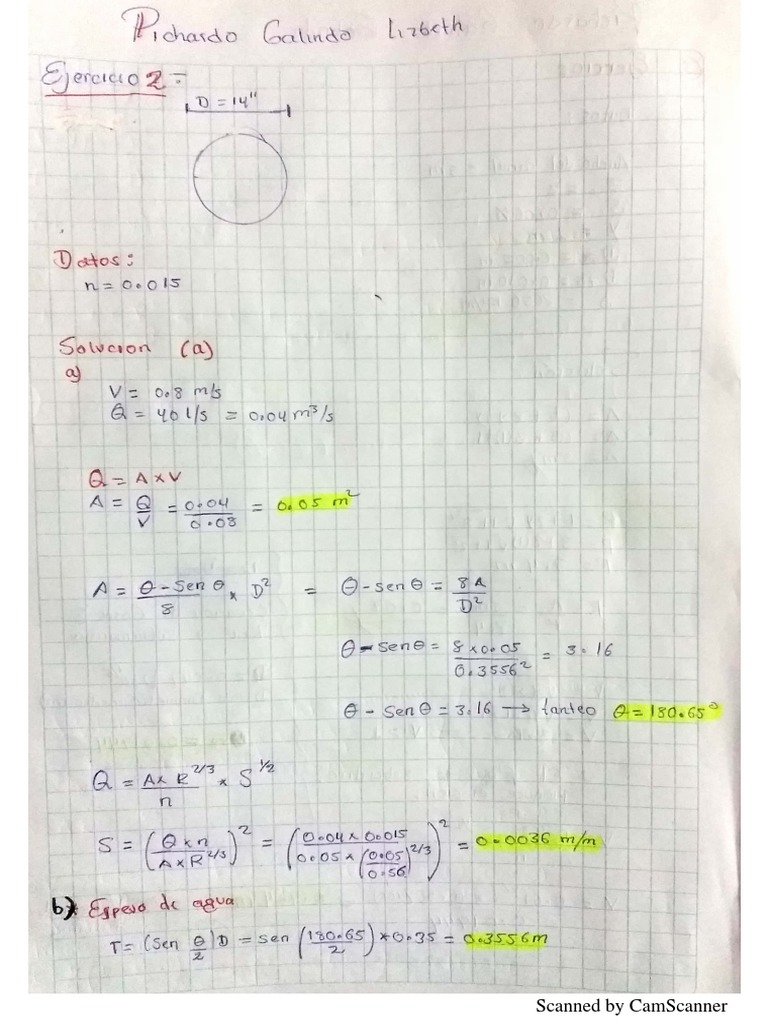 Pichardo Galindo Lizbeth
Ejercicio 2:
D = 14"
Datos:
n = 0.015
Solucion (a)
a)
V = 0.8 m/s
Q = 40 l/s = 0.04 m³/s
Q = A x V
A = Q/V = 0.04/0.08 = 0.05 m²
A = (θ - Sen θ)/8 x D² = θ - sen θ = 8A/D²
θ - sen θ = (8 x 0.05)/0.3556² = 3.16
θ - sen θ = 3.16 → tanteo θ = 180.65°
Q = (A x R^2/3)/n x S^1/2
S = ((Q x n)/(A x R^2/3))² = ((0.04 x 0.015)/(0.05 x (0.05/0.56)^2/3))² = 0.0036 m/m
b) Espejo de agua
T = (Sen θ/2) D = sen (180.65/2) * 0.35 = 0.3556 m
Scanned by CamScanner